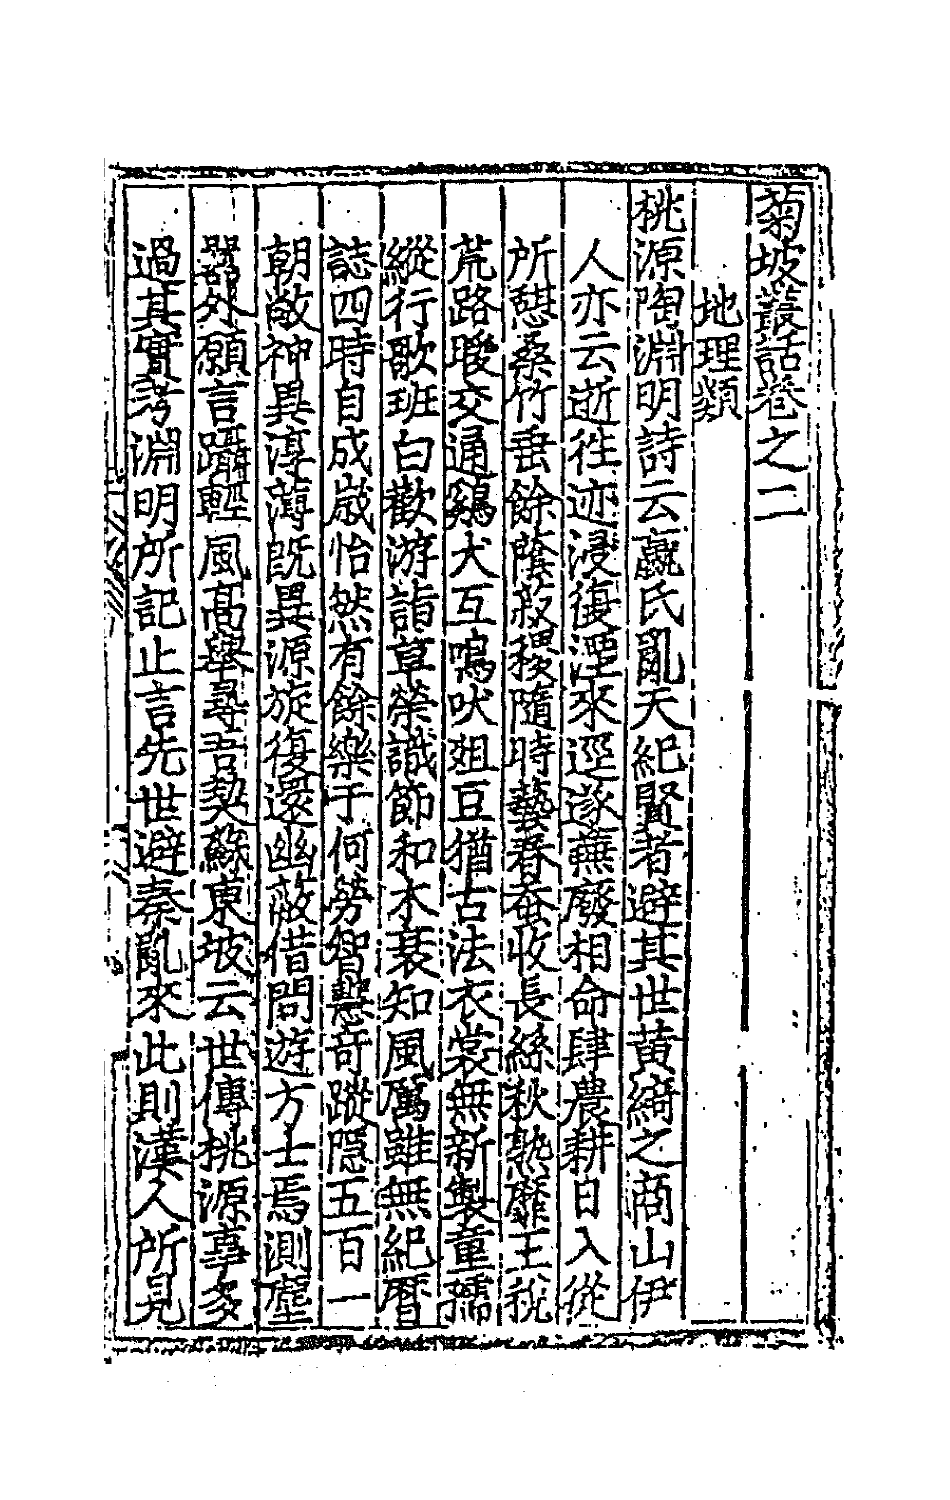 菊坡叢話卷之二
地理類
桃源陶淵明詩云嬴氏亂天紀賢者避其世黄綺之商山伊
人亦云逝徃迹浸復湮來逕遂蕪廢相命肆農耕日入從
所憇桑竹垂餘蔭菽稷隨時藝春蚕收長絲秋熟靡王稅
荒路曖交通鷄犬互鳴吠爼豆猶古法衣裳無新製童孺
縱行歌班白歡游詣草榮識節和木衰知風厲雖無紀曆
誌四時自成歳怡然有餘樂于何勞智慧奇蹤隱五百一
朝敞神異淳薄旣異源旋復還幽蔽借問遊方士焉測塵
嚣外願言躡輕風高舉尋吾契蘇東坡云世傳桃源事多
過其實考淵明所記止言先世避秦亂來此則漢人所見